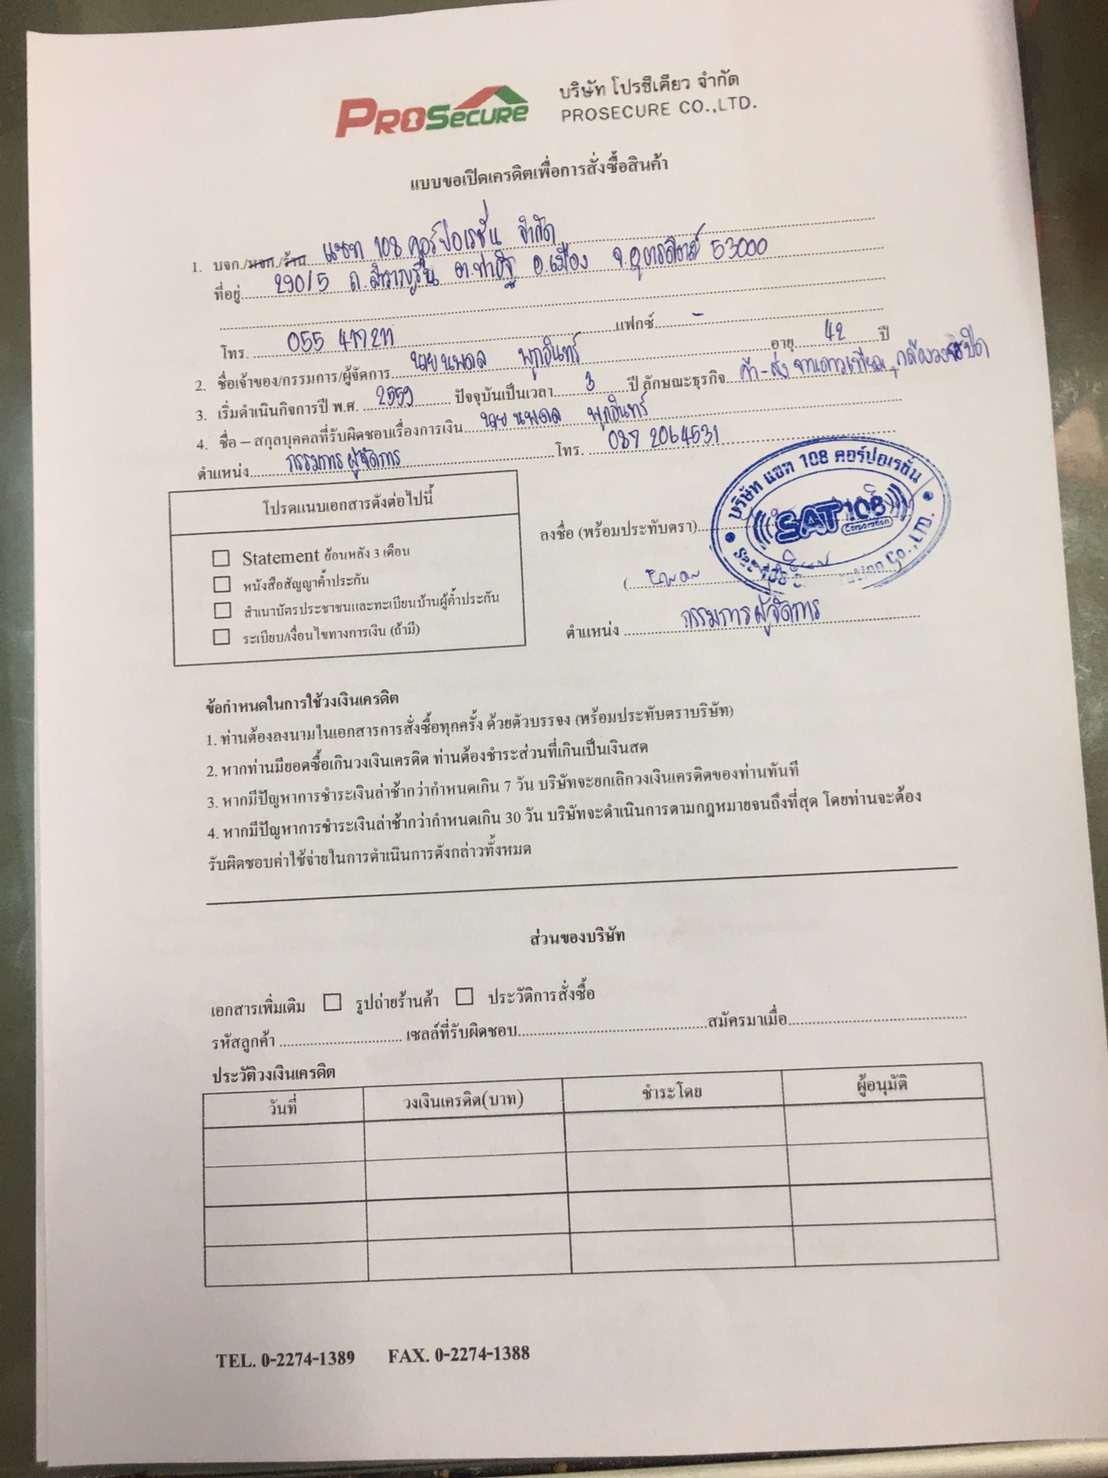 PROSECURE
บริษัท โปรซีเคียว จำกัด
PROSECURE CO.,LTD.
แบบขอเปิดเครดิตเพื่อการสั่งซื้อสินค้า
1. บจก./หจก./ร้าน แซท 108 คอร์ปอเรชั่น จำกัด
ที่อยู่ 290/5 ถ.สำราญรื่น ต.ท่าอิฐ อ.เมือง จ.อุตรดิตถ์ 53000
โทร. 055 แฟกซ์ -
2. ชื่อเจ้าของ/กรรมการ/ผู้จัดการ นายนพดล พุกอินทร์ อายุ 42 ปี
3. เริ่มดำเนินกิจการปี พ.ศ. 2559 ปัจจุบันเป็นเวลา 3 ปี ลักษณะธุรกิจ ค้า-ส่ง จานดาวเทียม, กล้องวงจรปิด
4. ชื่อ – สกุลบุคคลที่รับผิดชอบเรื่องการเงิน นายนพดล พุกอินทร์
ตำแหน่ง กรรมการผู้จัดการ โทร. 087 2064531
โปรดแนบเอกสารดังต่อไปนี้
☐ Statement ย้อนหลัง 3 เดือน
☐ หนังสือสัญญาค้ำประกัน
☐ สำเนาบัตรประชาชนและทะเบียนบ้านผู้ค้ำประกัน
☐ ระเบียบ/เงื่อนไขทางการเงิน (ถ้ามี)
บริษัท แซท 108 คอร์ปอเรชั่น
SAT108
Corporation
Co., LTD.
ลงชื่อ (พร้อมประทับตรา)
(
ตำแหน่ง กรรมการผู้จัดการ
ข้อกำหนดในการใช้วงเงินเครดิต
1. ท่านต้องลงนามในเอกสารการสั่งซื้อทุกครั้ง ด้วยตัวบรรจง (พร้อมประทับตราบริษัท)
2. หากท่านมียอดซื้อเกินวงเงินเครดิต ท่านต้องชำระส่วนที่เกินเป็นเงินสด
3. หากมีปัญหาการชำระเงินล่าช้ากว่ากำหนดเกิน 7 วัน บริษัทจะยกเลิกวงเงินเครดิตของท่านทันที
4. หากมีปัญหาการชำระเงินล่าช้ากว่ากำหนดเกิน 30 วัน บริษัทจะดำเนินการตามกฎหมายจนถึงที่สุด โดยท่านจะต้อง
รับผิดชอบค่าใช้จ่ายในการดำเนินการดังกล่าวทั้งหมด
ส่วนของบริษัท
เอกสารเพิ่มเติม ☐ รูปถ่ายร้านค้า ☐ ประวัติการสั่งซื้อ
รหัสลูกค้า เซลล์ที่รับผิดชอบ สมัครมาเมื่อ
ประวัติวงเงินเครดิต
วันที่ วงเงินเครดิต(บาท) ชำระโดย ผู้อนุมัติ
TEL. 0-2274-1389 FAX. 0-2274-1388